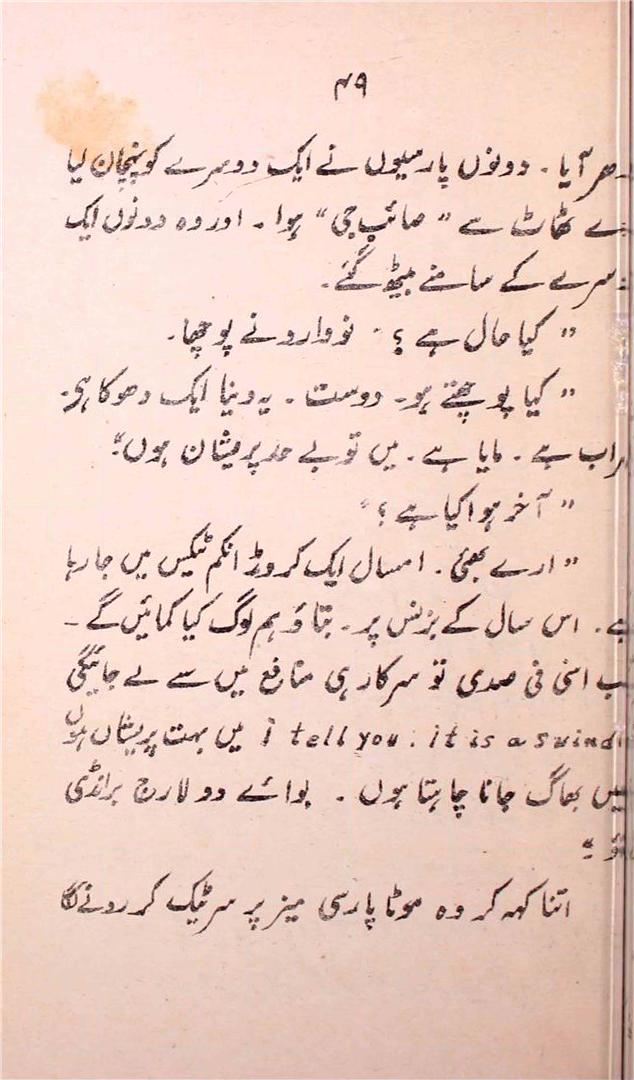 ۴۹
دھر آیا۔ دونوں پارسیوں نے ایک دوسرے کو پہچان لیا
ے ٹھاٹ سے "صائب جی" ہوا۔ اور وہ دونوں ایک
سرے کے سامنے بیٹھ گئے۔
"کیا حال ہے؟" نووارد نے پوچھا۔
"کیا پوچھتے ہو۔ دوست۔ یہ دنیا ایک دھوکا ہی۔
راب ہے۔ مایا ہے۔ میں تو بے حد پریشان ہوں"
"آخر ہوا کیا ہے؟"
"ارے بھئی۔ امسال ایک کروڑ انکم ٹیکس میں جا رہا
ہے۔ اس سال کے بزنس پر۔ بتاؤ ہم لوگ کیا کمائیں گے۔
ب اسّی فی صدی تو سرکار ہی منافع میں سے لے جائیگی
i tell you. it is a swindl میں بہت پریشاں ہوں
یں بھاگ جانا چاہتا ہوں۔ بوائے دو لارج برانڈی
ؤ"
اتنا کہہ کر وہ موٹا پارسی میز پر سر ٹیک کر رونے لگا